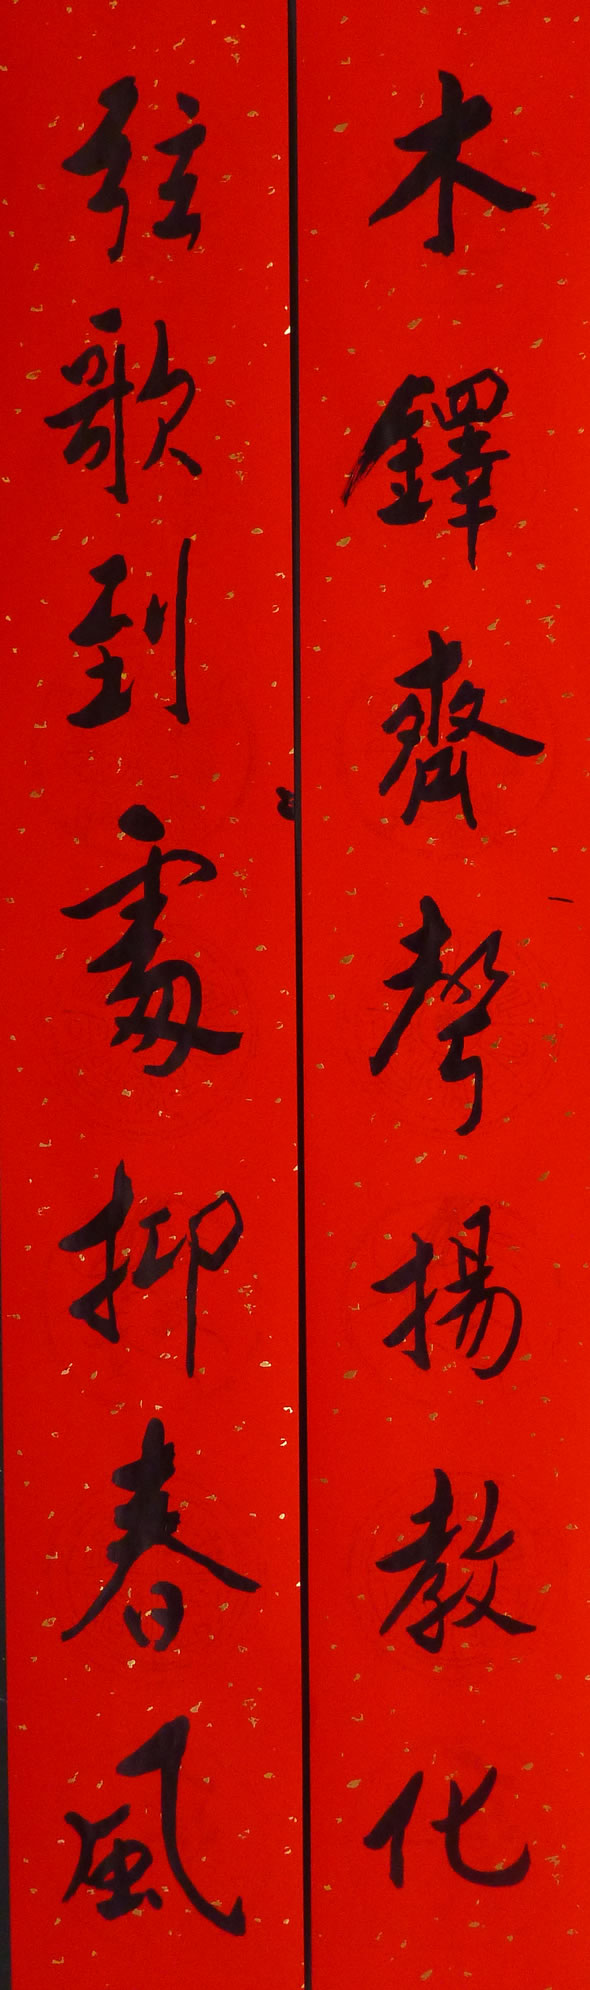 木鐸齊聲揚教化
弦歌到處抑春風